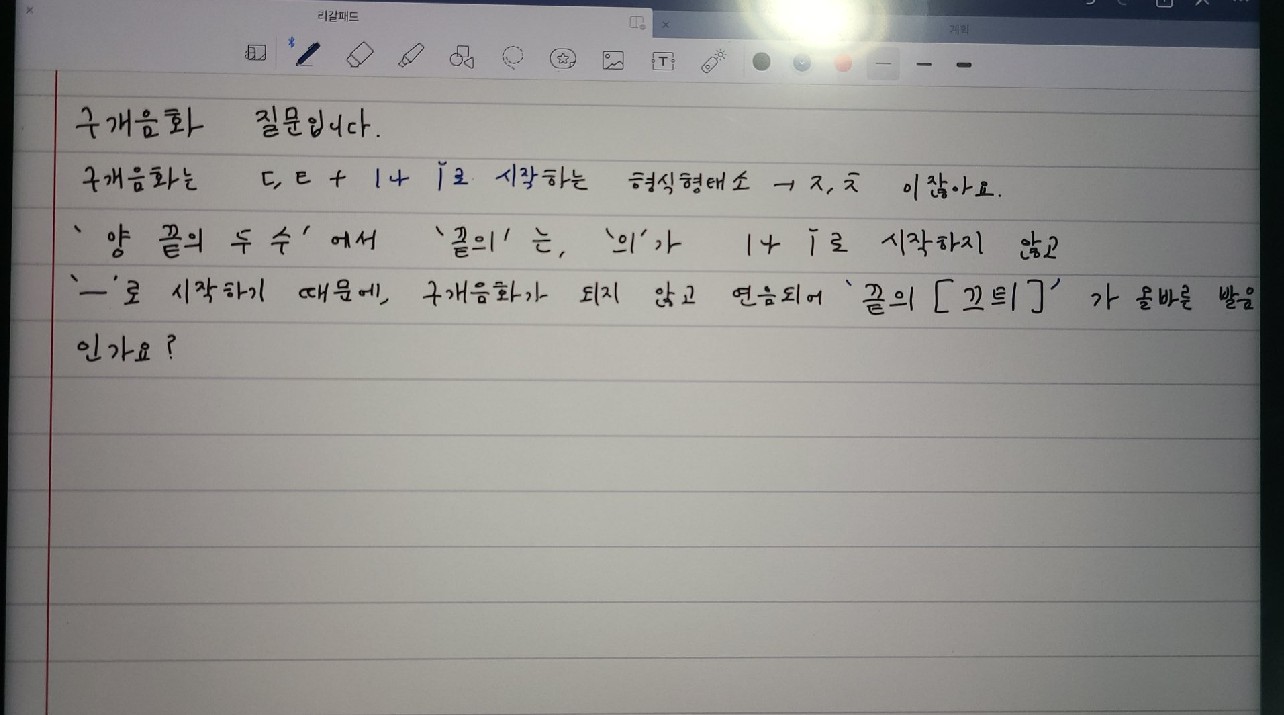 리갈패드
계획
구개음화 질문입니다.
구개음화는 ㄷ, ㅌ + ㅣ나 ㅣ̆로 시작하는 형식형태소 → ㅈ, ㅊ 이잖아요.
'양 끝의 두 수'에서 '끝의'는, '의'가 ㅣ나 ㅣ̆로 시작하지 않고
'ㅡ'로 시작하기 때문에, 구개음화가 되지 않고 연음되어 '끝의 [끄틔]'가 올바른 발음
인가요?